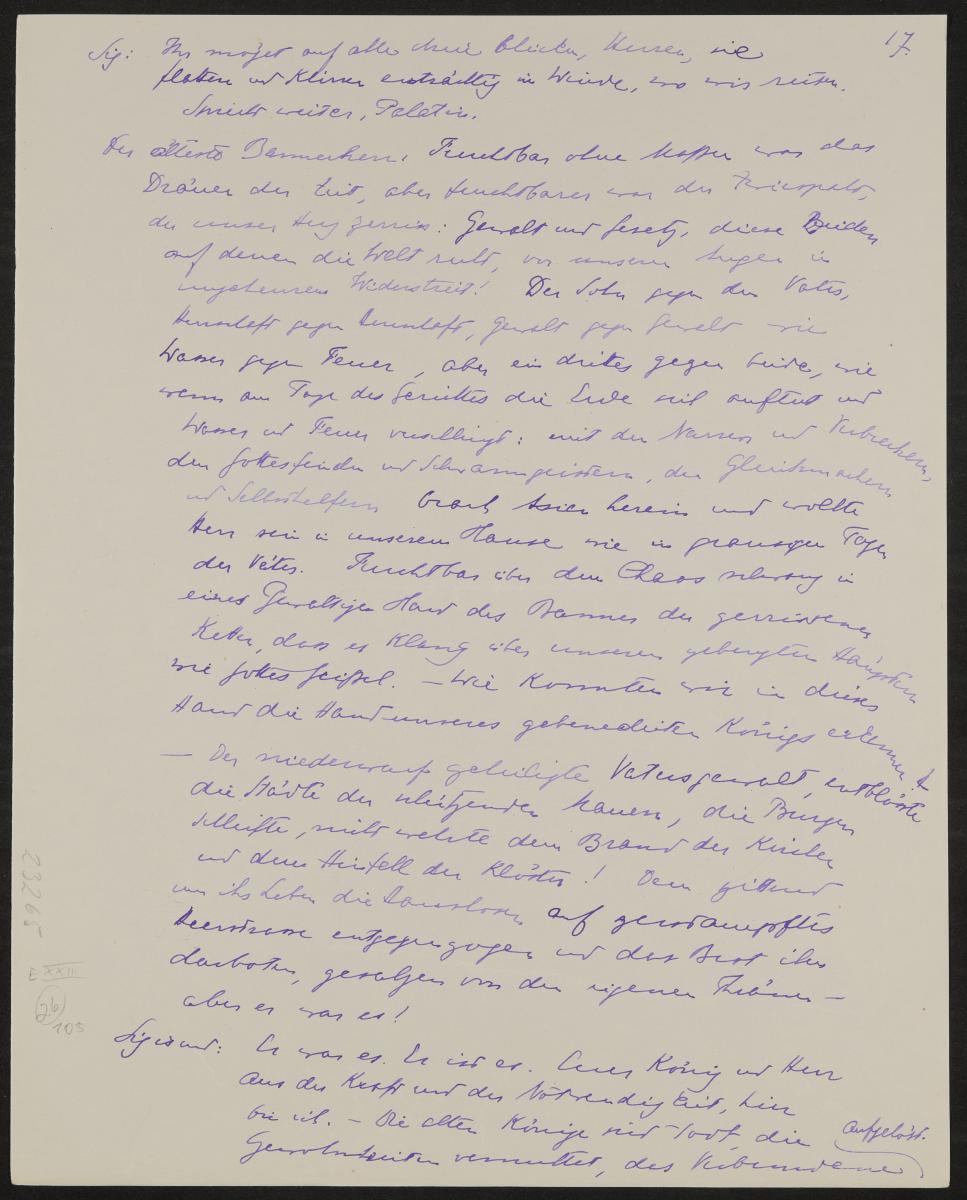 17.
Sig: Ihr möget auf alle drei blicken, Herren, sie
flattern und klirren einträchtig im Winde, wo wir reiten.
Sprich weiter, Palatin.
Der älteste Bannerherr: Furchtbar ohne Massen war das
Dräuen der Zeit, aber furchtbarer war der Zwiespalt,
der unser Herz zerriss: Gewalt und Gesetz, diese Beiden
auf denen die Welt ruht, vor unseren Augen in
ungeheurem Widerstreit! Der Sohn gegen den Vater,
Herrschaft gegen Herrschaft, Gewalt gegen Gewalt wie
Wasser gegen Feuer, aber ein drittes gegen beide, wie
wenn am Tage des Gerichtes die Erde sich auftut und
Wasser und Feuer verschlingt: mit den Narren und Verbrechern,
den Gottesfeinden und Schwarmgeistern, den Gleichmachern
und Selbsthelfern brach Asien herein und wollte
Herr sein in unserem Hause wie in grausigen Tagen
der Väter. Furchtbar über dem Chaos schwang in
eines Gewaltigen Hand des Bannes der zerrissenen
Ketten, dass es klang über unseren gebeugten Häuptern
wie Gottes Geißel. – Wie konnten wir in dieser
Hand die Hand unseres gebenedeiten Königs erkennen?
– Der niederwarf geheiligte Vatersgewalt, entblösste
die Städte der schützenden Mauern, die Burgen
schleifte, nicht wehrte dem Brand der Kirchen
und dem Hinfall der Klöster! Dem zitternd
um ihr Leben die Hauslosen auf zerstampfter
Heerstrasse entgegenzogen und das Brot ihm
darboten, gesalzen von den eigenen Thränen –
aber er war es!
Sigismund: Er war es. Er ist es. Euer König und Herr
aus der Kraft und der Notwendigkeit, hier
bin ich. – Die alten Könige sind todt, die
Gewohnheiten vernichtet, das Verbundene aufgelöst.
23265
E XXIII
26
105